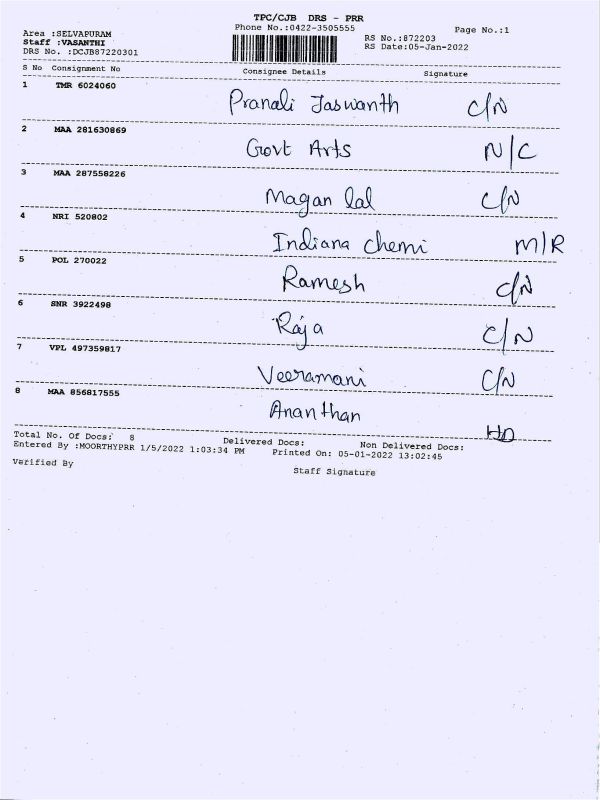 TPC/CJB DRS - PRR
Phone No.:0422-3505555 Page No.:1
Area :SELVAPURAM
Staff :VASANTHI RS No.:872203
DRS No. :DCJB87220301 RS Date:05-Jan-2022
S No Consignment No Consignee Details Signature
1 TMR 6024060 Pranali Jaswanth C/N
2 MAA 281630869 Govt Arts N/C
3 MAA 287558226 Magan lal C/N
4 NRI 520802 Indiana chemi M/R
5 POL 270022 Ramesh C/N
6 SNR 3922498 Raja C/N
7 VPL 497359817 Veeramani C/N
8 MAA 856817555 Ananthan HD
Total No. Of Docs: 8 Delivered Docs: Non Delivered Docs:
Entered By :MOORTHYPRR 1/5/2022 1:03:34 PM Printed On: 05-01-2022 13:02:45
Verified By Staff Signature